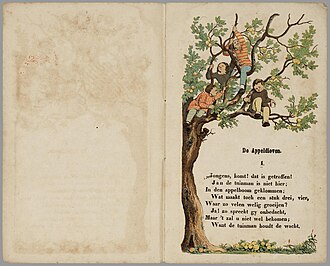 De Appeldieven.
1.
„Jongens, komt! dat is getroffen!
Jan de tuinman is niet hier;
In den appelboom geklommen;
Wat maakt toch een stuk drie, vier,
Waar zo velen welig groeijen?
Ja! zo spreekt gy onbedacht,
Maar 't zal u niet wel bekomen;
Want de tuinman houdt de wacht.